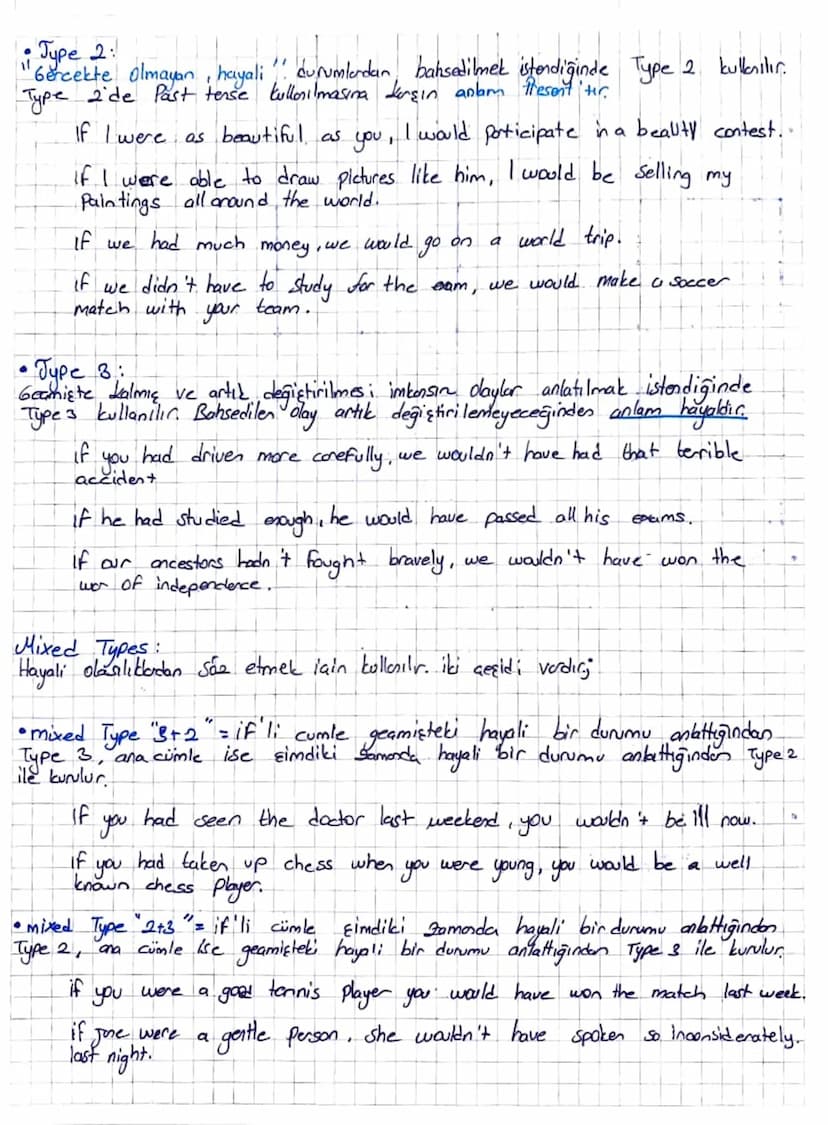 • Type 2:
"Gerçekte olmayan, hayali" durumlardan bahsedilmek istendiğinde Type 2 kullanılır.
Type 2'de Past tense kullanılmasına karşın anlam Present'tır.
If I were as beautiful as you, I would participate in a beauty contest.
if I were able to draw pictures like him, I would be selling my
paintings all around the world.
if we had much money, we would go on a world trip.
if we didn't have to study for the exam, we would make a soccer
match with your team.
• Type 3:
Geçmişte kalmış ve artık değiştirilmesi imkansız olaylar anlatılmak istendiğinde
Type 3 kullanılır. Bahsedilen olay artık değiştirilemeyeceğinden anlam hayaldir.
if you had driven more carefully, we wouldn't have had that terrible
accident
if he had studied enough, he would have passed all his exams.
If our ancestors hadn't fought bravely, we wouldn't have won the
war of independence.
Mixed Types:
Hayali olasılıklardan söz etmek için kullanılır. iki çeşidi vardır;
• mixed Type "3+2" = if'li cümle geçmişteki hayali bir durumu anlattığından
Type 3, ana cümle ise şimdiki zamanda hayali bir durumu anlattığından Type 2
ile kurulur.
If you had seen the doctor last weekend, you wouldn't be ill now.
if you had taken up chess when you were young, you would be a well
known chess player.
• mixed Type "2+3" = if'li cümle şimdiki zamanda hayali bir durumu anlattığından
Type 2, ana cümle ise geçmişteki hayali bir durumu anlattığından Type 3 ile kurulur.
if you were a good tennis player you would have won the match last week.
if Jane were a gentle person, she wouldn't have spoken so inconsiderately.
last night.